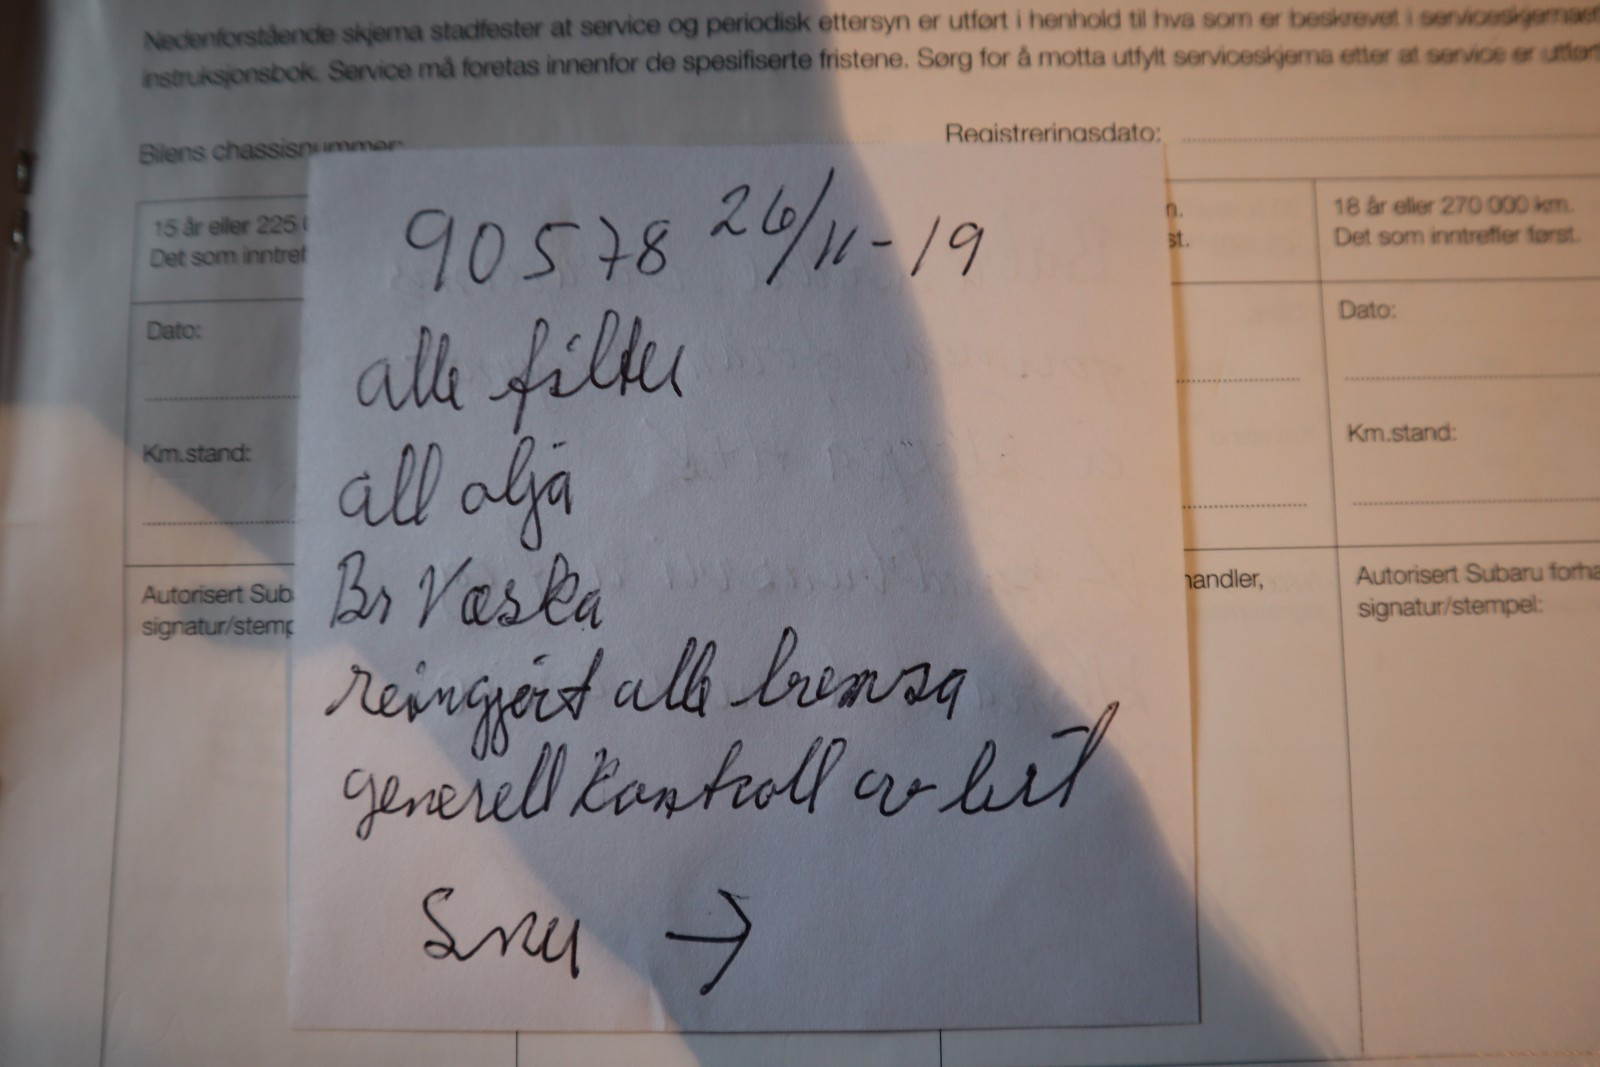 Nedenforstående skjema stadfester at service og periodisk ettersyn er utført i henhold til hva som er beskrevet i serviceskjemaet
instruksjonsbok. Service må foretas innenfor de spesifiserte fristene. Sørg for å motta utfylt serviceskjema etter at service er utført
Bilens chassisnummer:
Registreringsdato:
15 år eller 225 0
Det som inntref
n.
st.
18 år eller 270 000 km.
Det som inntreffer først.
90578 26/11-19
alle filter
all oljå
Br Væska
reingjort alle bremsa
generell kontroll av bil
Snu →
Dato:
Km.stand:
Autorisert Sub
signatur/stemp
handler,
Dato:
Km.stand:
Autorisert Subaru forha
signatur/stempel: